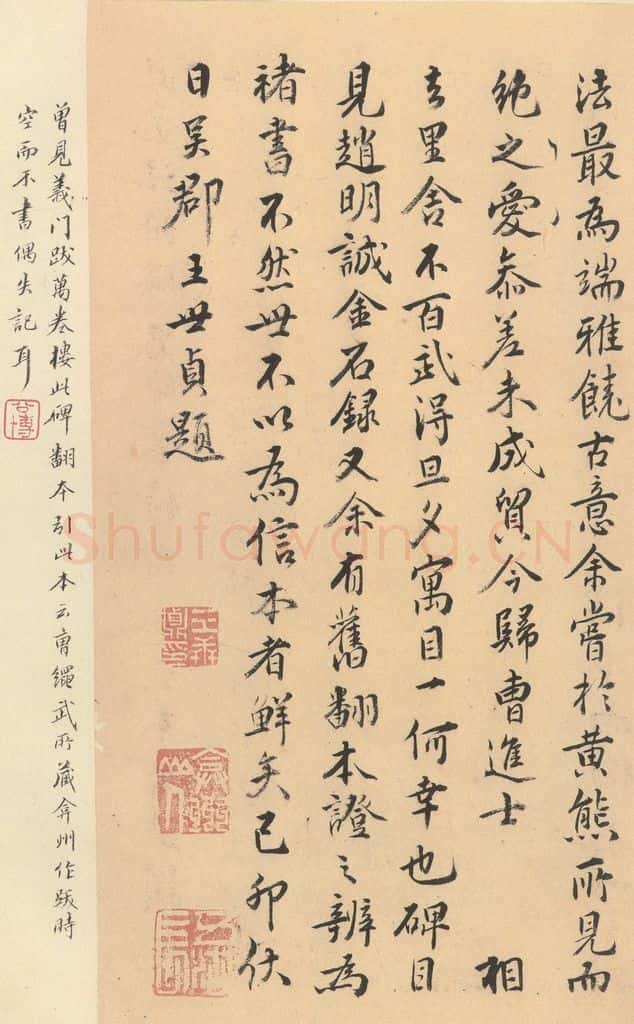 法最為端雅饒古意余嘗於黄熊所見而
絶之愛叅差未成貿今歸曹進士 相
去里舍不百武得旦夕寓目一何幸也碑目
見趙明誠金石録又余有舊翻本證之辨為
褚書不然世不以為信本者鮮矣己卯伏
日吴郡王世貞題
曾見義门跋萬卷樓此碑翻本引此本云曹繩武所藏弇州作跋時
空而不書偶失記耳
Shufawang.CN